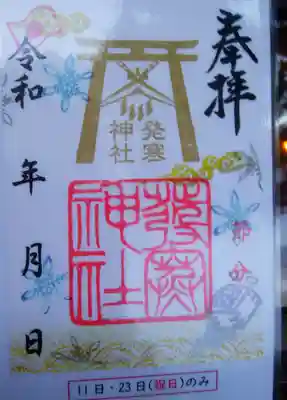 奉拝
発寒
神社
節分
發寒
神社
令和 年 月 日
11日・23日(祝日)のみ